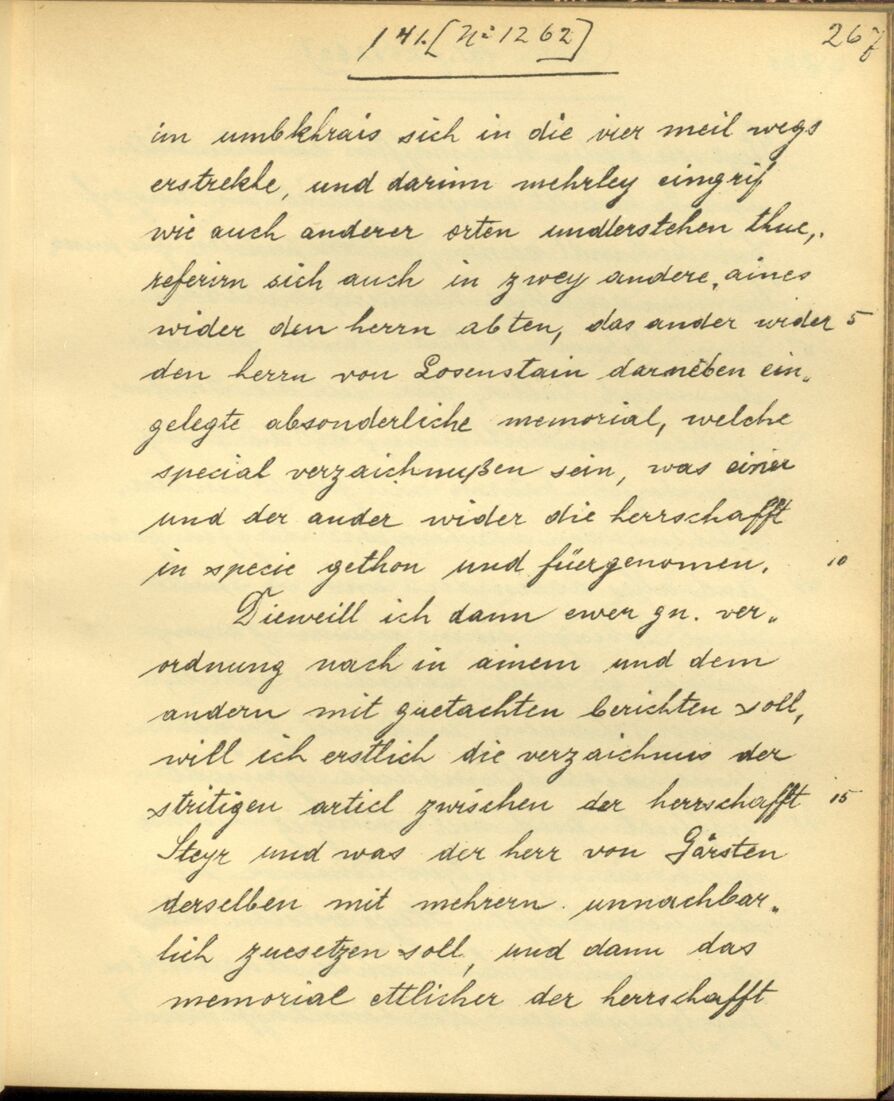 141. [Nº 1262]
267
im umbkhrais sich in die vier meil wegs
erstrekhe, und darinn mehrley eingrif
wie auch anderer orten undterstehen thue,
referirn sich auch in zwey andere, aines
wider den herrn abten, das ander wider 5
den herrn von Losenstain darneben ein„
gelegte absonderliche memorial, welche
special verzaichnußen sein, was einer
und der ander wider die herrschafft
in specie gethon und füergenomen. 10
Dieweill ich dann ewer gn. ver„
ordnung nach in ainem und dem
andern mit guetachten berichten soll,
will ich erstlich die verzaichnus der
stritigen articl zwischen der herrschafft 15
Steyr und was der herr von Gärsten
derselben mit mehrern unnachbar„
lich zuesetzen soll, und dann das
memorial ettlicher der herrschafft